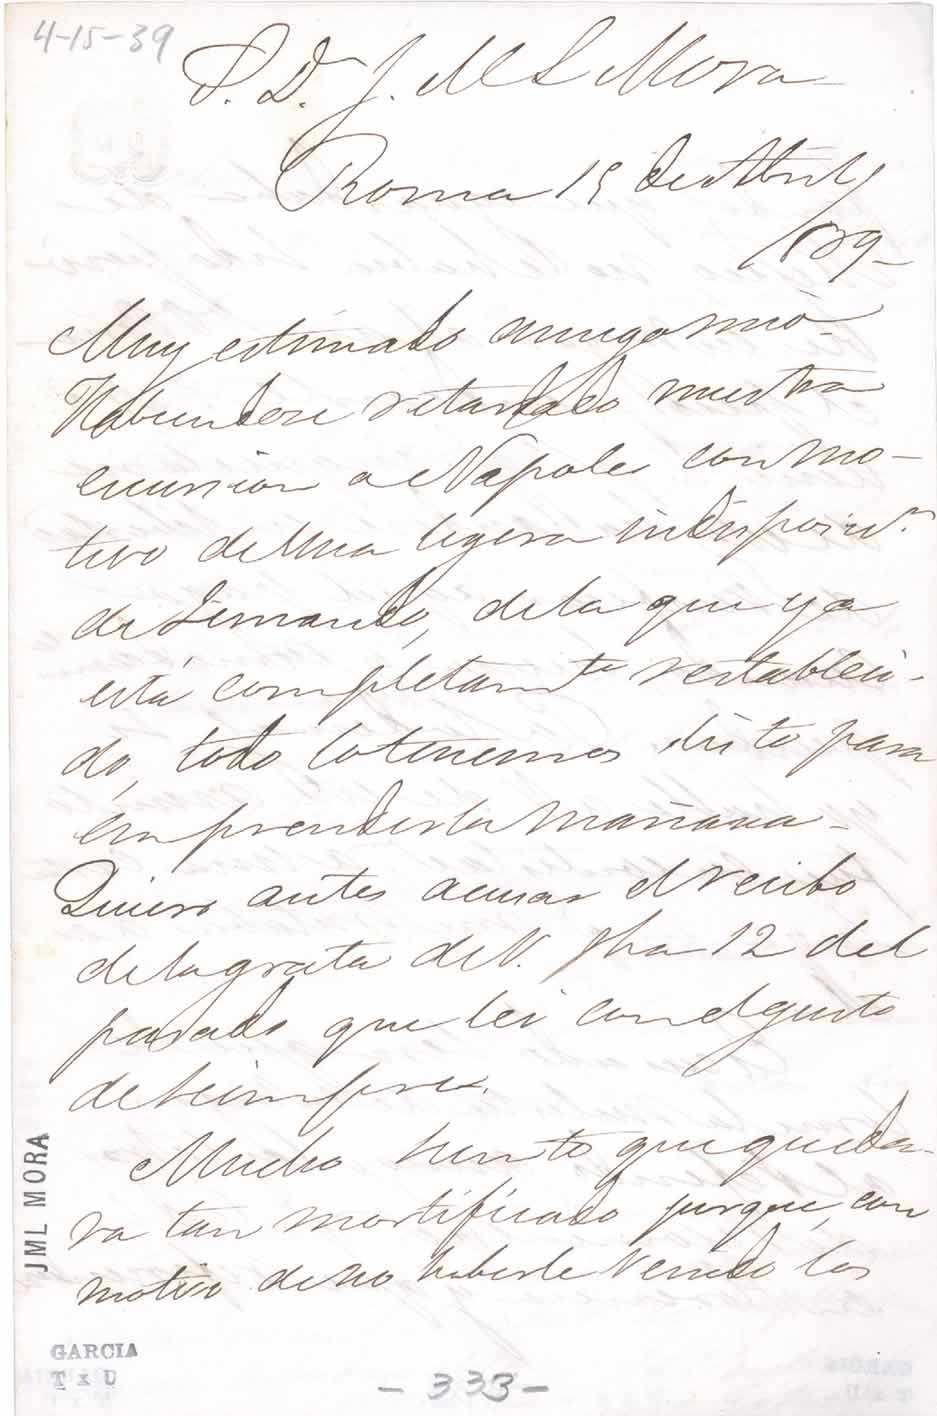 4-15-39
S. D. J. M L Mora
Roma 15 de Abril
1839-
Muy estimado amigo mio-
Habiendose retardado nuestra
escursion a Napoles con mo-
tivo de una ligera indisposicn.
de Fernando, de la que ya
está completamte restableci-
do, todo lo tenemos listo para
emprenderla mañana-
Quiero antes acusar el recibo
de la grata de V. fha 12 del
pasado que lei con el gusto
de siempre.
Mucho siento que queda-
ra tan mortificado porque, con
motivo de no haberle venido los
JML MORA
GARCIA
T x U
- 333 -